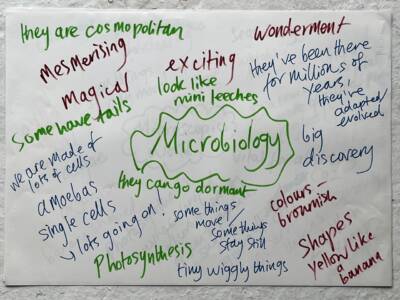 they are cosmopolitan
mesmerising
magical
some have tails
exciting
look like
mini leeches
wonderment
they've been there
for millions of
years,
they've
adapted/
evolved
Microbiology
we are made of
lots of cells
amoebas
single cells
↳ lots going on!
they can go dormant
big
discovery
some things
move/
some things
stay still
colours –
brownish
Photosynthesis
tiny wiggly things
shapes
yellow like
a
banana